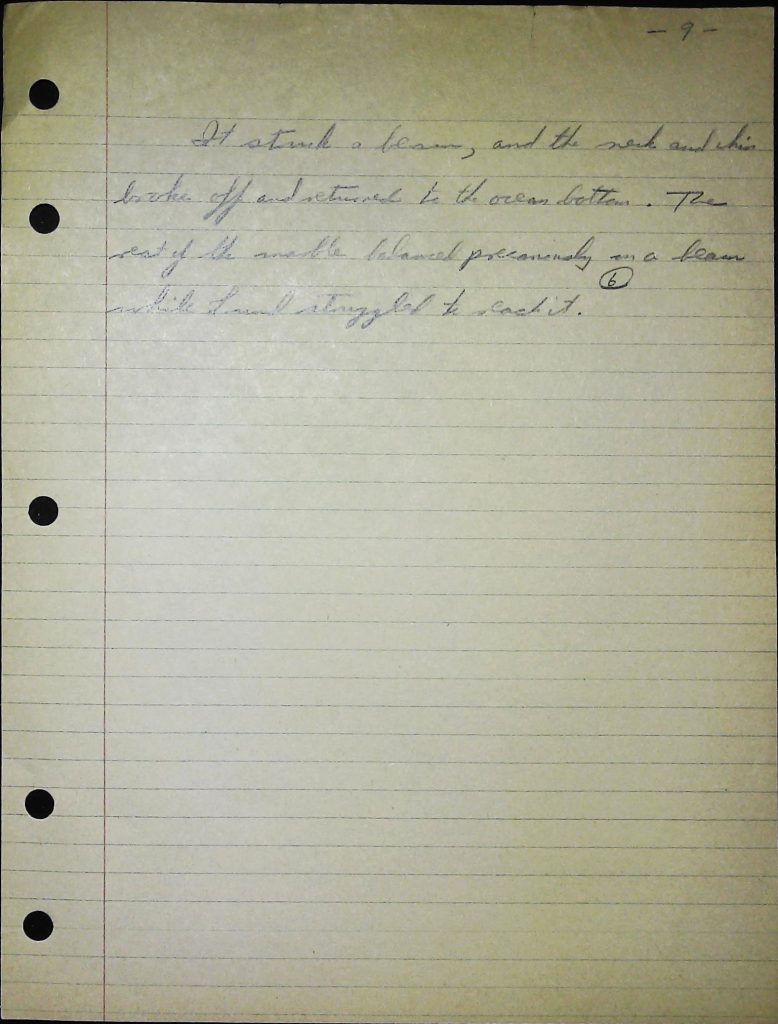 - 9 -
It struck a beam, and the neck and chin
broke off and returned to the ocean bottom. The
rest of the marble balanced precariously on a beam
6
while I and struggled to reach it.